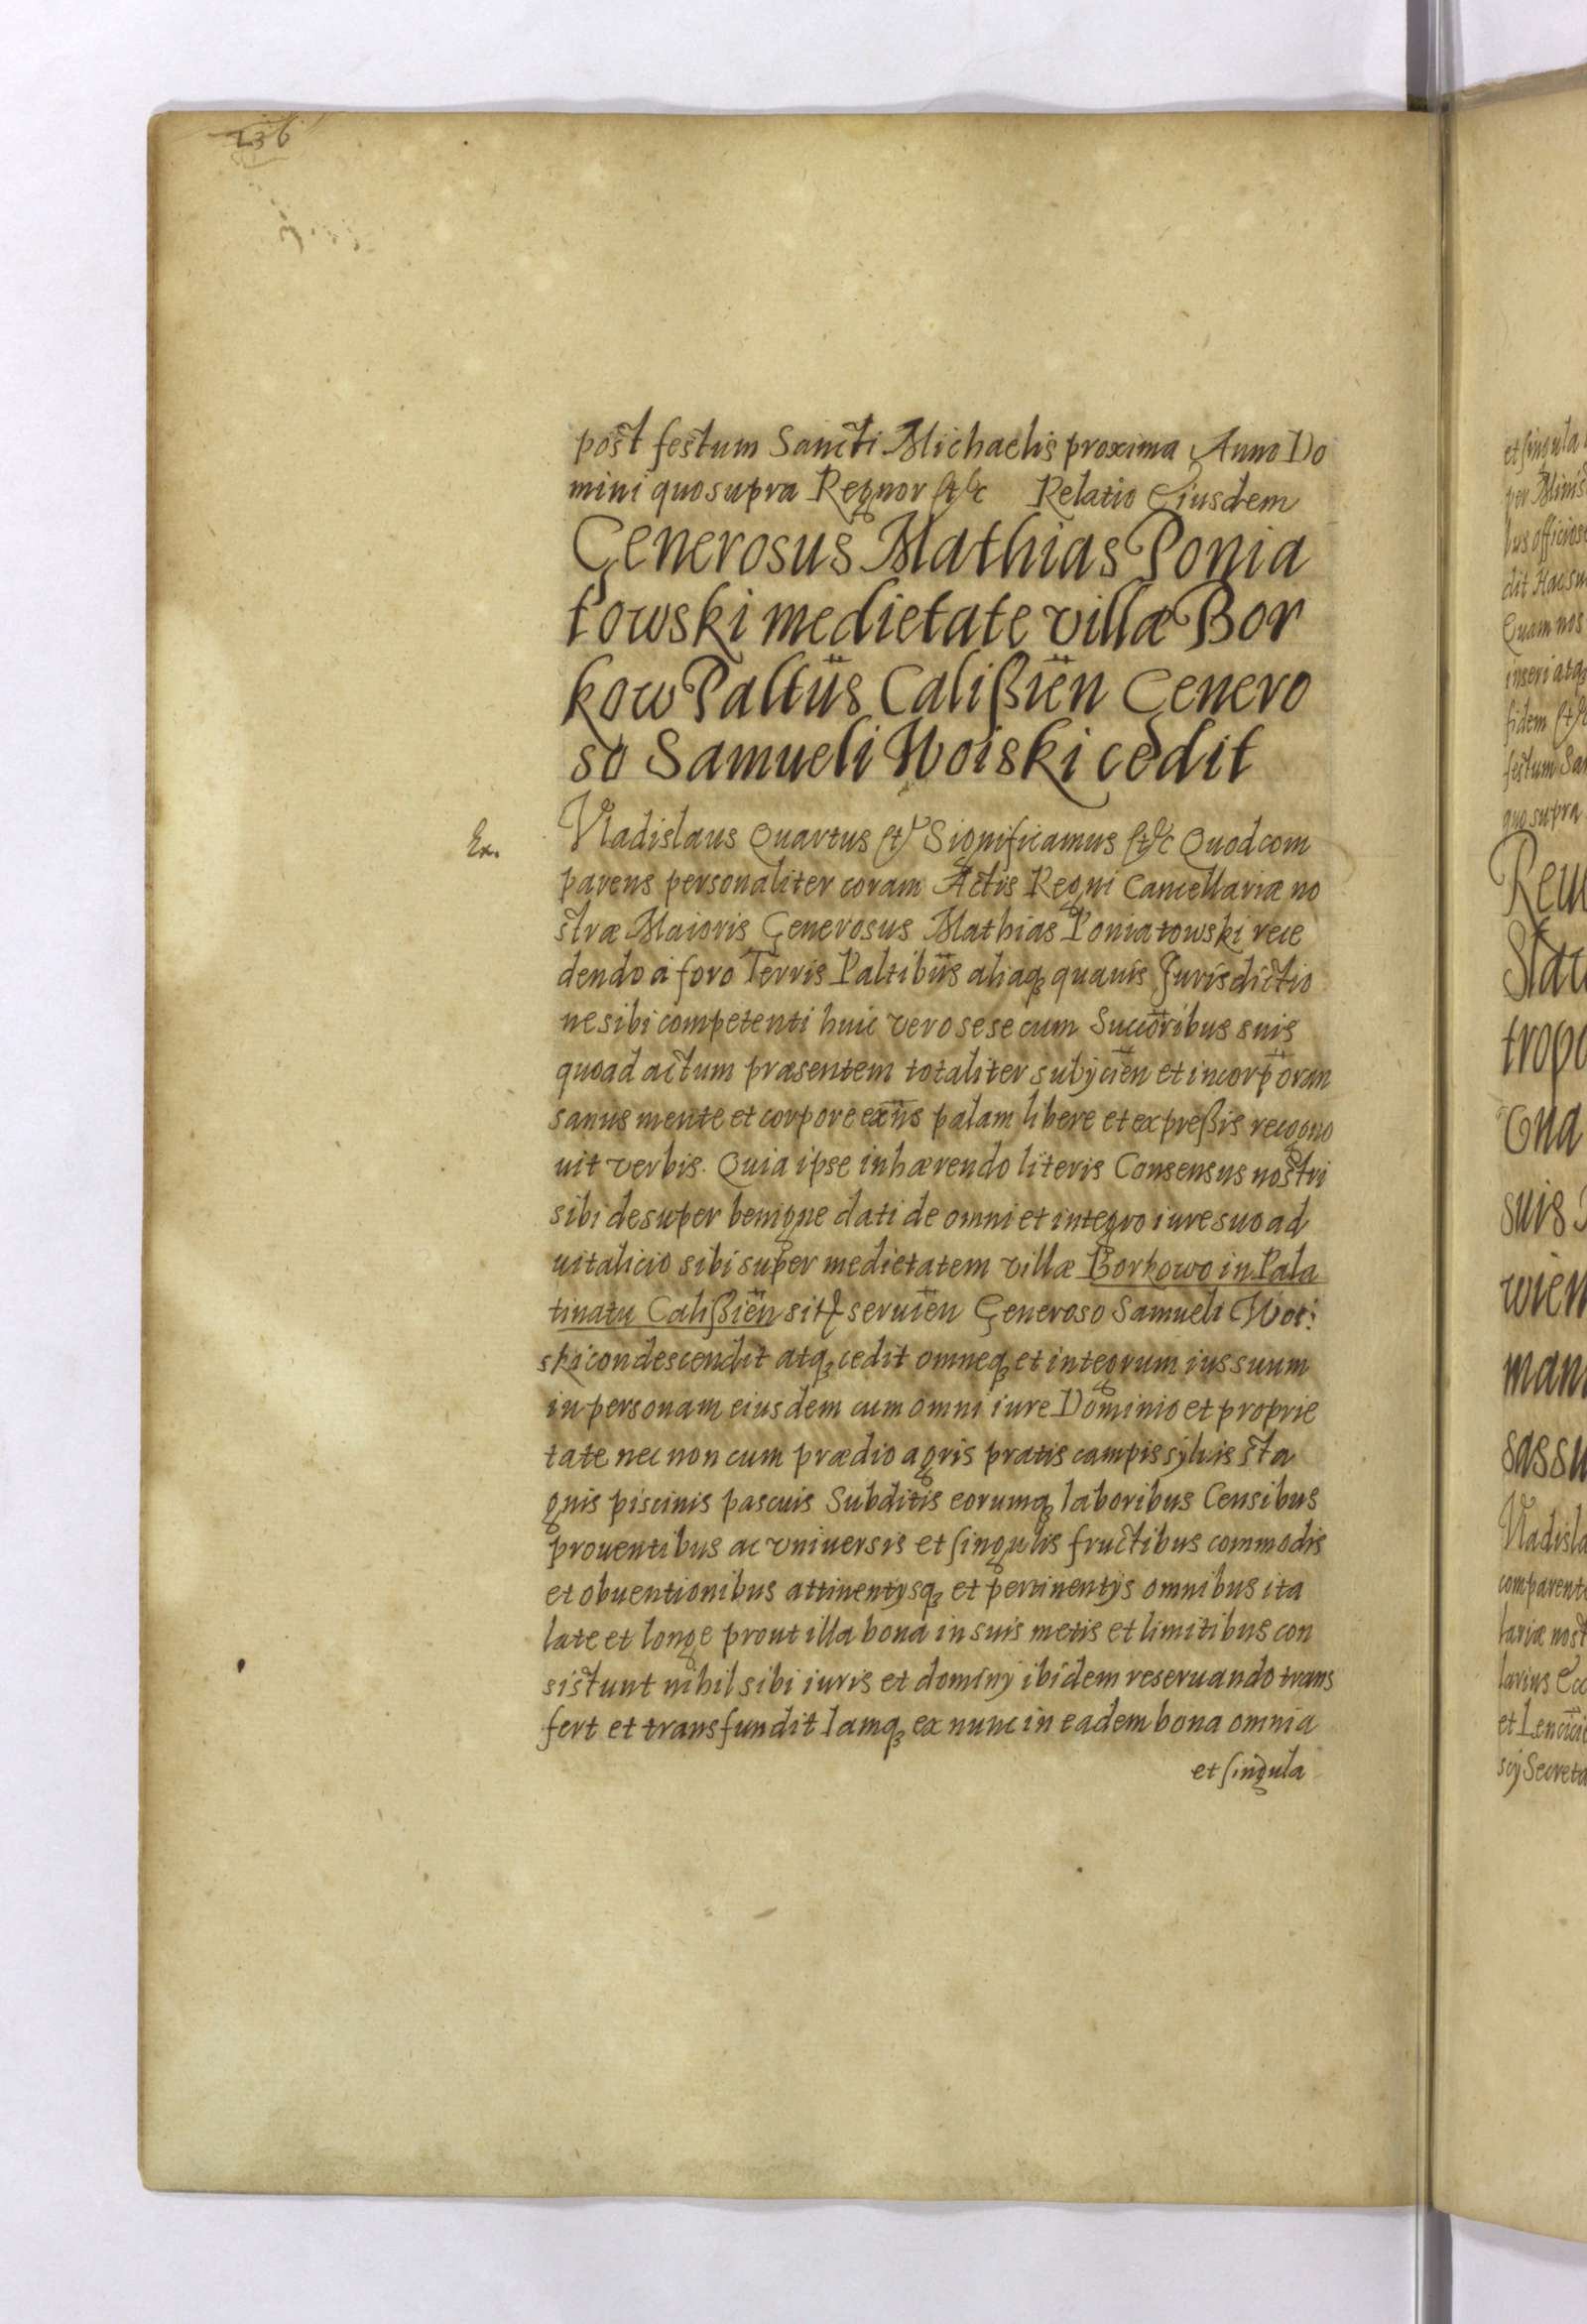 236
post festum Sancti Michaelis proxima Anno Do
mini quo supra Regnor etc Relatio Eiusdem
Generosus Mathias Ponia
towski medietate villæ Bor
kow Paltüs Calißien Genero
so Samueli Woiski cedit
Ex.
Vladislaus Quartus et Significamus etc Quod com
parens personaliter coram Actis Regni Cancellariæ no
stræ Maioris Generosus Mathias Poniatowski rece
dendo a foro Terris Paltibüs aliaq quauis Jurisdictio
ne sibi competenti huic vero sese cum Succoribus suis
quoad actum præsentem totaliter subijcien et incorporan
sanus mente et corpore exñs palam libere et expreßis recogno
uit verbis. Quia ipse inhærendo literis Consensus nostri
sibi desuper benigne dati de omni et integro iure suo ad
uitalicio sibi super medietatem villæ Borkowo in Pala
tinatu Calißien sit seruien Generoso Samueli Woi:
ski condescendit atq cedit omneq et integrum ius suum
in personam eiusdem cum omni iure Dominio et proprie
tate nec non cum prædio agris pratis campis syluis sta
gnis piscinis pascuis Subditis eorumq laboribus Censibus
prouentibus ac vniuersis et singulis fructibus commodis
et obuentionibus attinentysq et pertinentijs omnibus ita
late et longe prout illa bona in suis metis et limitibus con
sistunt nihil sibi iuris et dominy ibidem reseruando trans
fert et transfundit Iamq ex nunc in eadem bona omnia
et singula